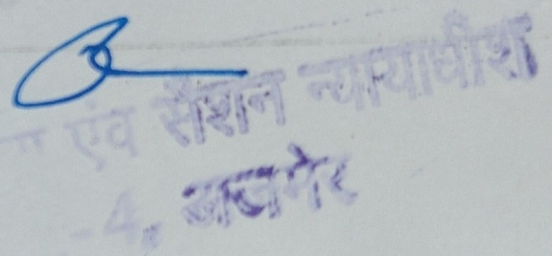 एंव सैशन न्यायाधीश
-4, अजमेर